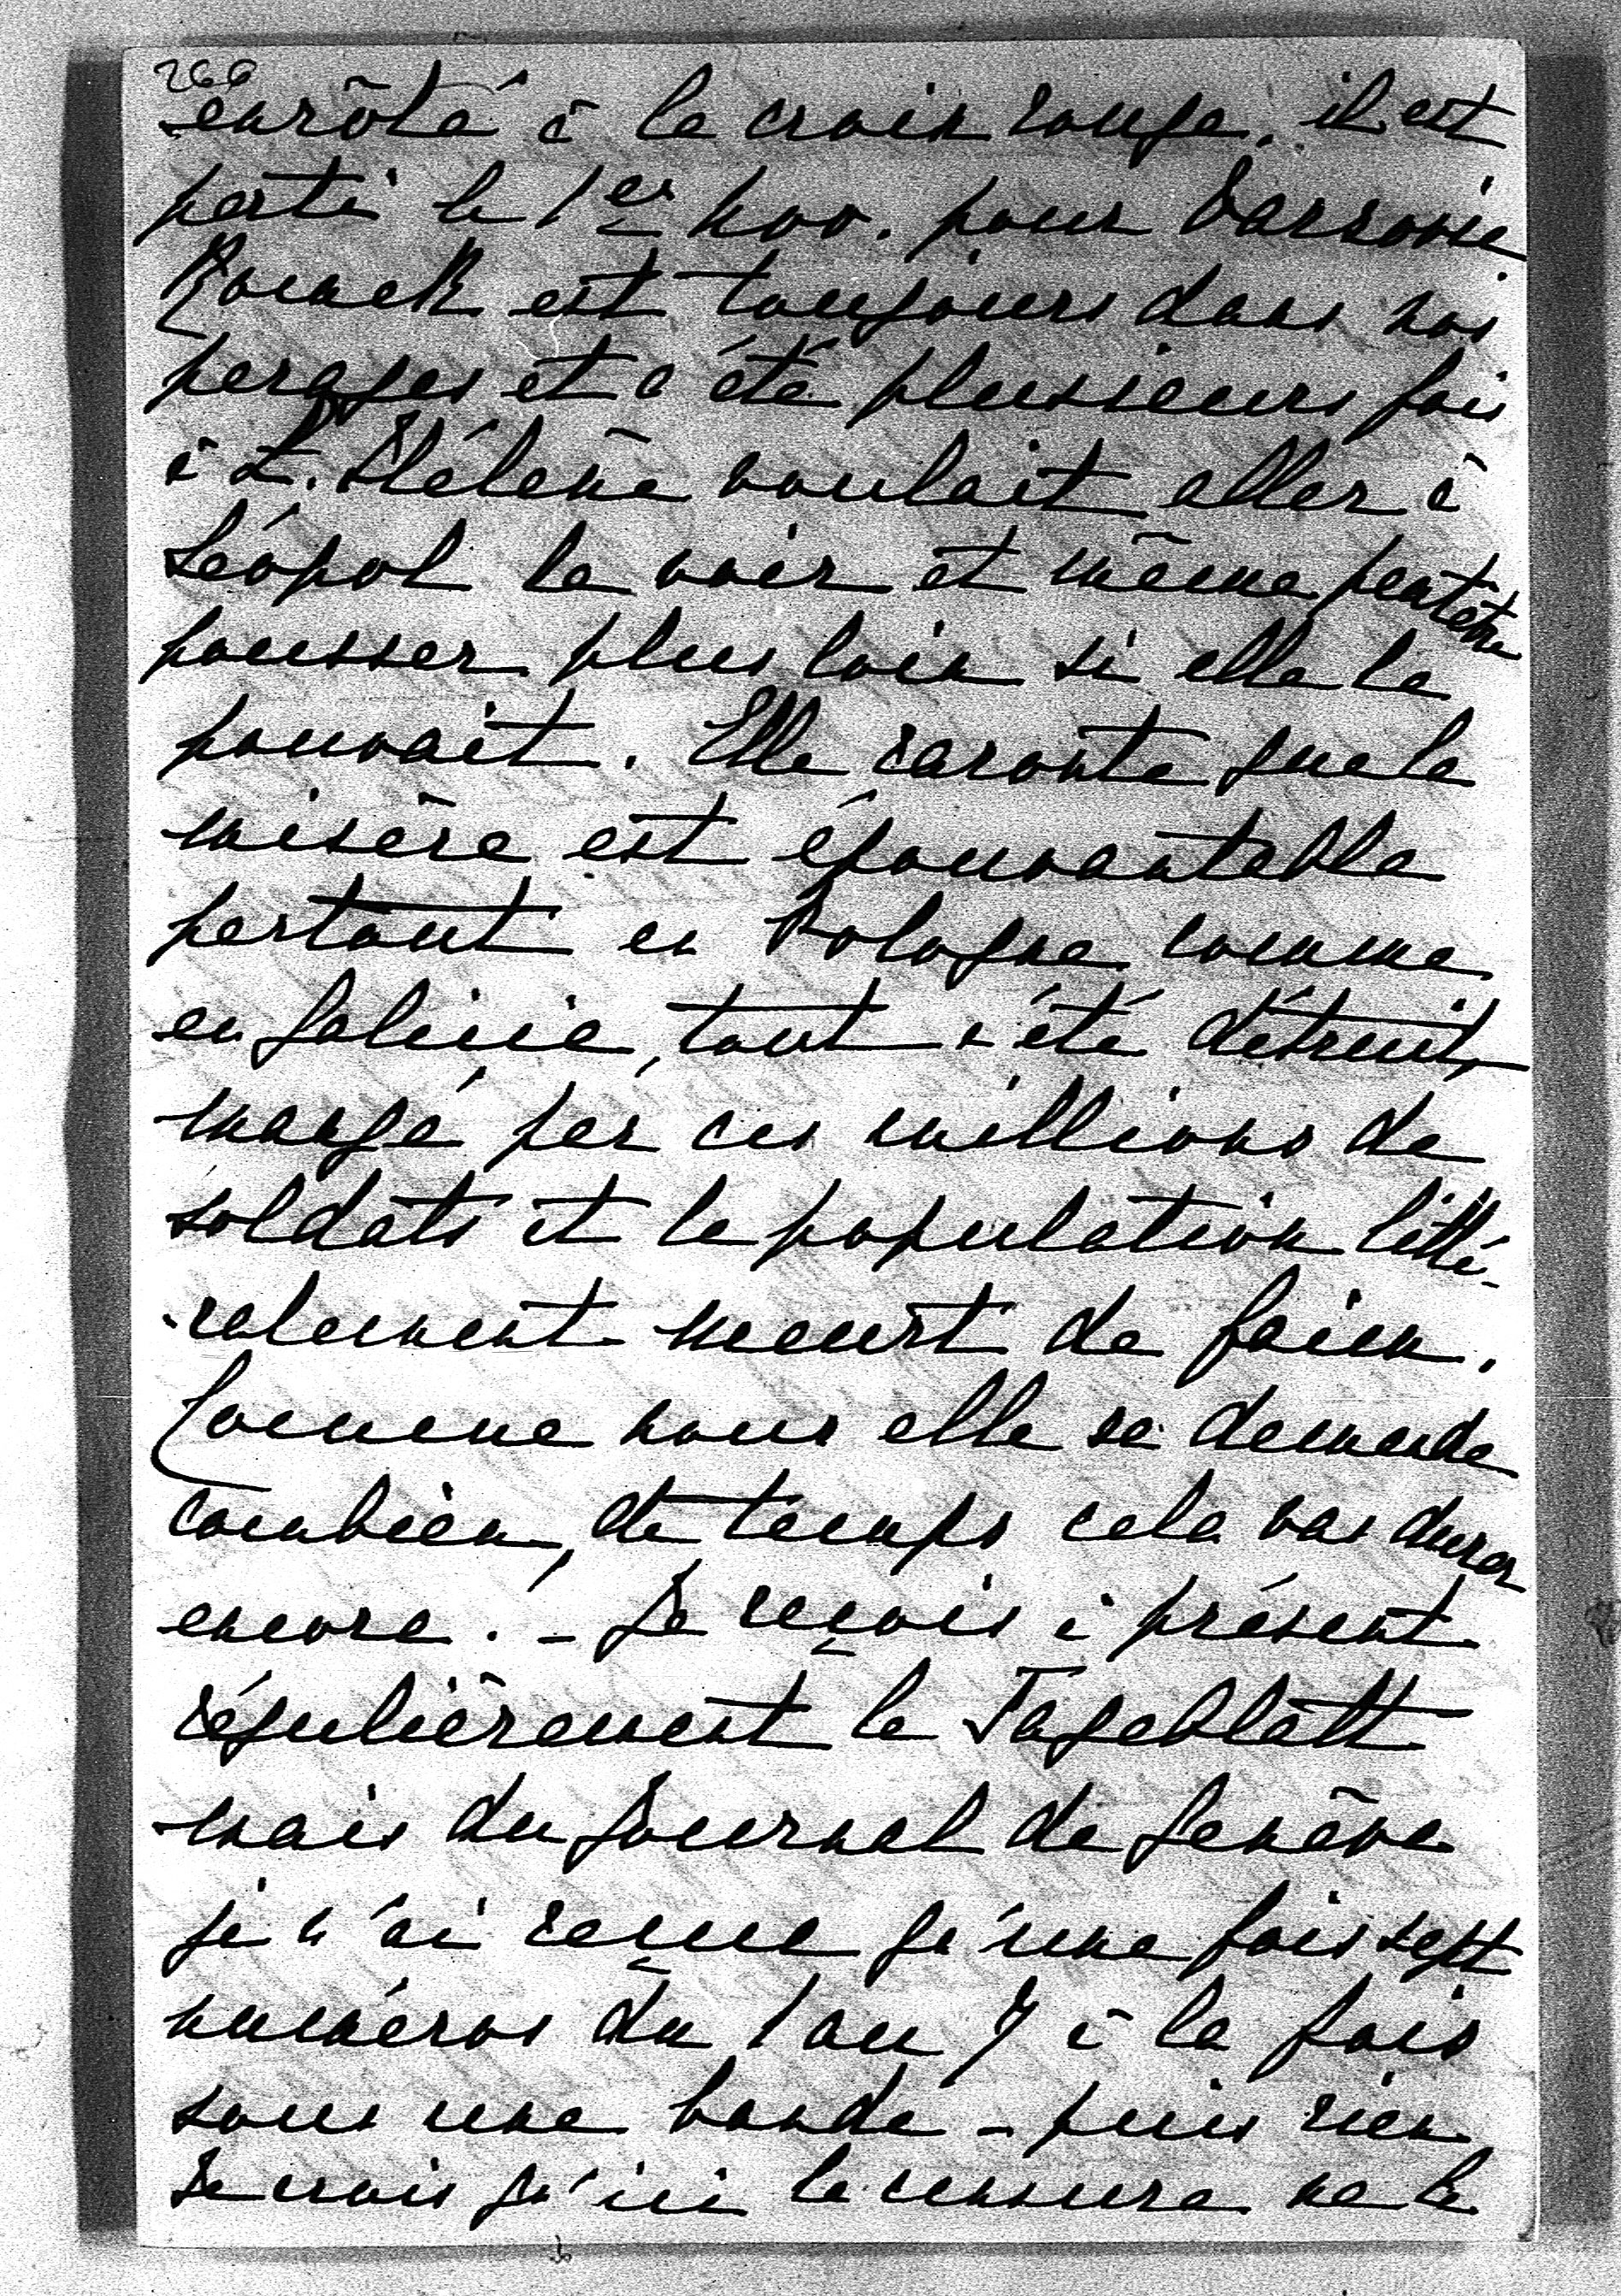 266
enrôlé à la croix rouge, il est
parti le 1er nov. pour Varsovie
est toujours dans nos
parages et a été plusieurs fois
à L. Hélène voulait aller à
Léopol le voir et même peutêtre
pousser plus loin si elle le
pouvait. Elle raconte que la
misère est épouvantable
partout en Pologne comme
en Galicie, tout a été détruit,
mangé par ces millions de
soldats et la population litté-
ralement meurt de faim.
Comme nous elle se demande
combien, de temps cela vas durer
encore. - Je reçois à présent
régulièrement le Tageblatt
mais du Journal de Genève
je n'ai reçue qu'une fois sept
numéros du 1 au 7 à la fois
sous une bande - puis rien
Je crois qu'ici la censure ne le